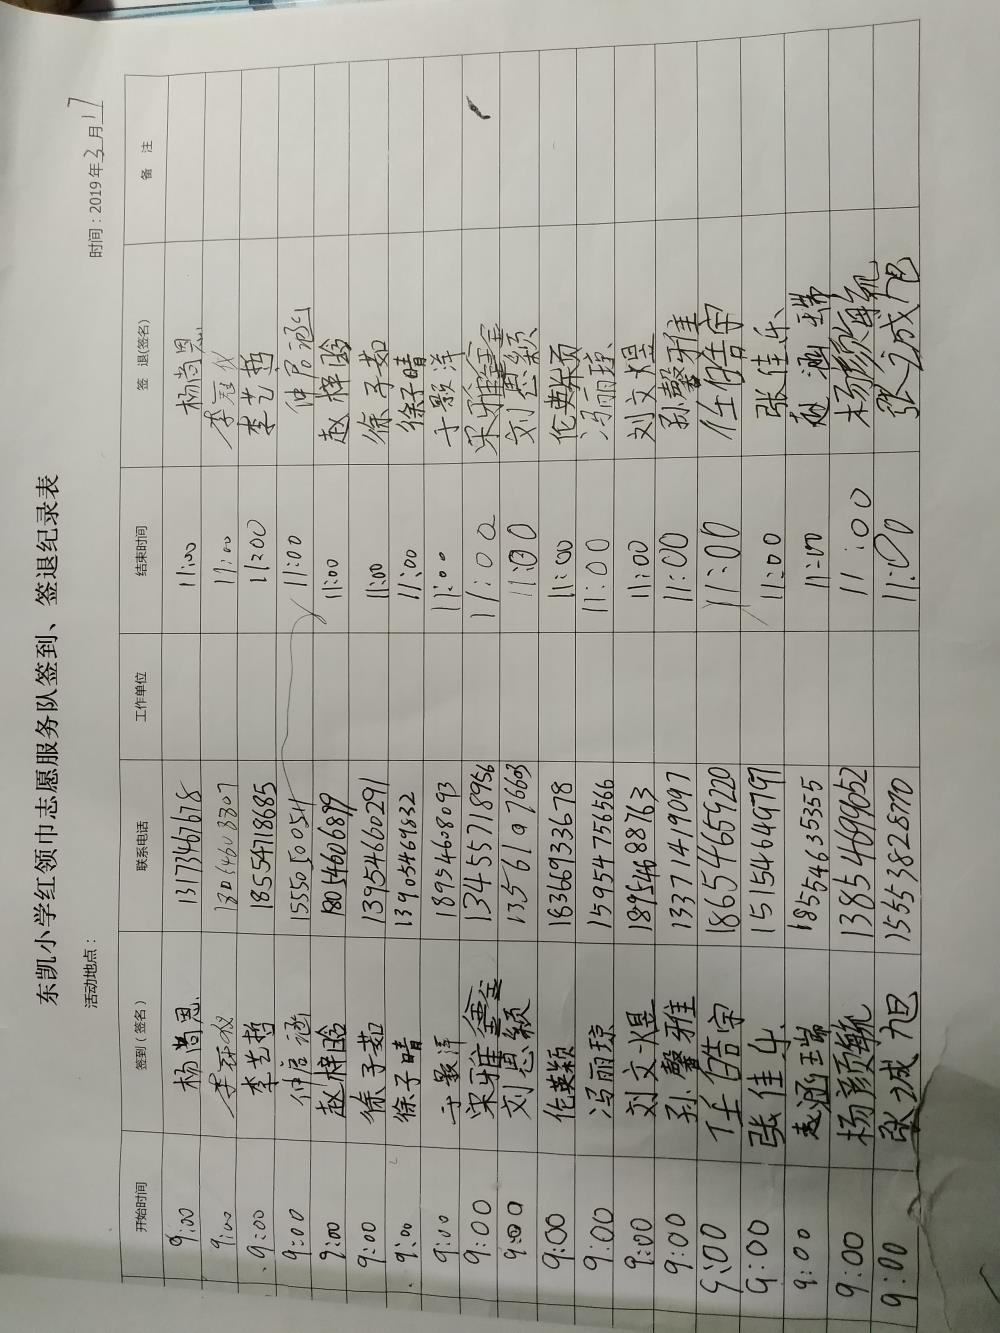 东凯小学红领巾志愿服务队签到、签退纪录表
活动地点： 时间：2019年3月17
开始时间 签到（签名） 联系电话 工作单位 结束时间 签 退(签名) 备 注
9:00 杨尚恩 13173467678 11:00 杨尚恩
9:00 11:00
9:00 李艺哲 18554718685 11:00 李艺哲
9:00 仲启涵 15550500054 11:00 仲启涵
9:00 赵梓晗 18054606899 11:00 赵梓晗
9:00 徐子茹 13954660291 11:00 徐子茹
9:00 徐子晴 13905469632 11:00 徐子晴
9:00 于颢洋 18954608093 11:00 于颢洋
9:00 宋雅鑫 13455718956 11:00 宋雅鑫
9:00 刘恩颖 13561976603 11:00 刘恩颖
9:00 伦英颖 18366933678 11:00 伦英颖
9:00 冯丽琼 15954756566 11:00 冯丽琼
9:00 刘文煜 18954688763 11:00 刘文煜
9:00 孙馨雅 13371419097 11:00 孙馨雅
9:00 任佳浩宇 18654659220 11:00
9:00 张佳乐 15154649797 11:00 张佳乐
9:00 赵涵瑞 18554635355 11:00 赵涵瑞
9:00 杨颜毓 13854699052 11:00 杨颜毓
9:00 张成旭 15553828770 11:00